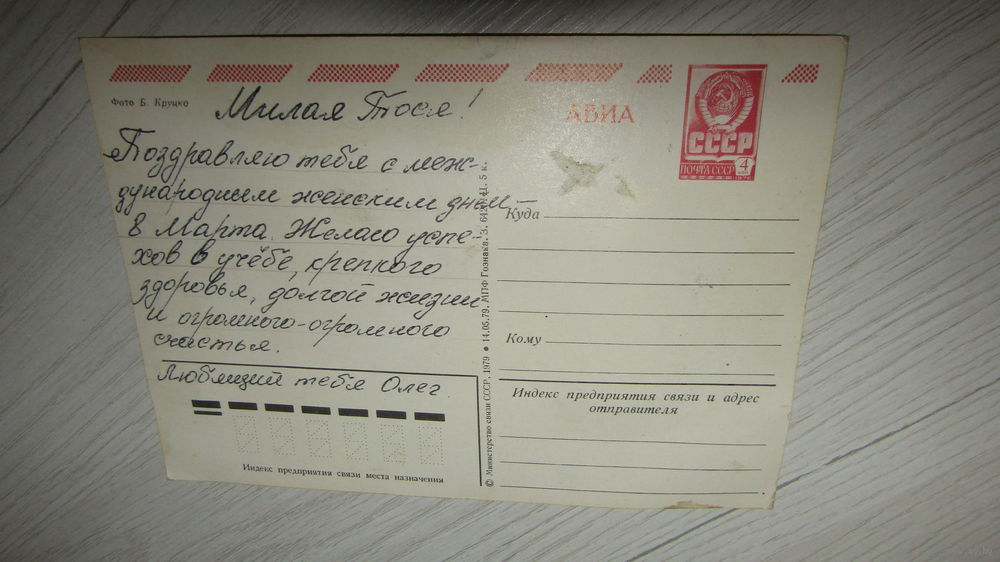 Фото Б. Круцко
Милая Тося!
Поздравляю тебя с меж-
дународным женским днём –
8 Марта. Желаю успе-
хов в учёбе, крепкого
здоровья, долгой жизни
и огромного-огромного
счастья.
Любящий тебя Олег.
Индекс предприятия связи места назначения
© Министерство связи СССР, 1979 • 14.05.79. МПФ Гознака. З. 5 к.
АВИА
СССР
ПОЧТА СССР 4
Куда
Кому
Индекс предприятия связи и адрес
отправителя